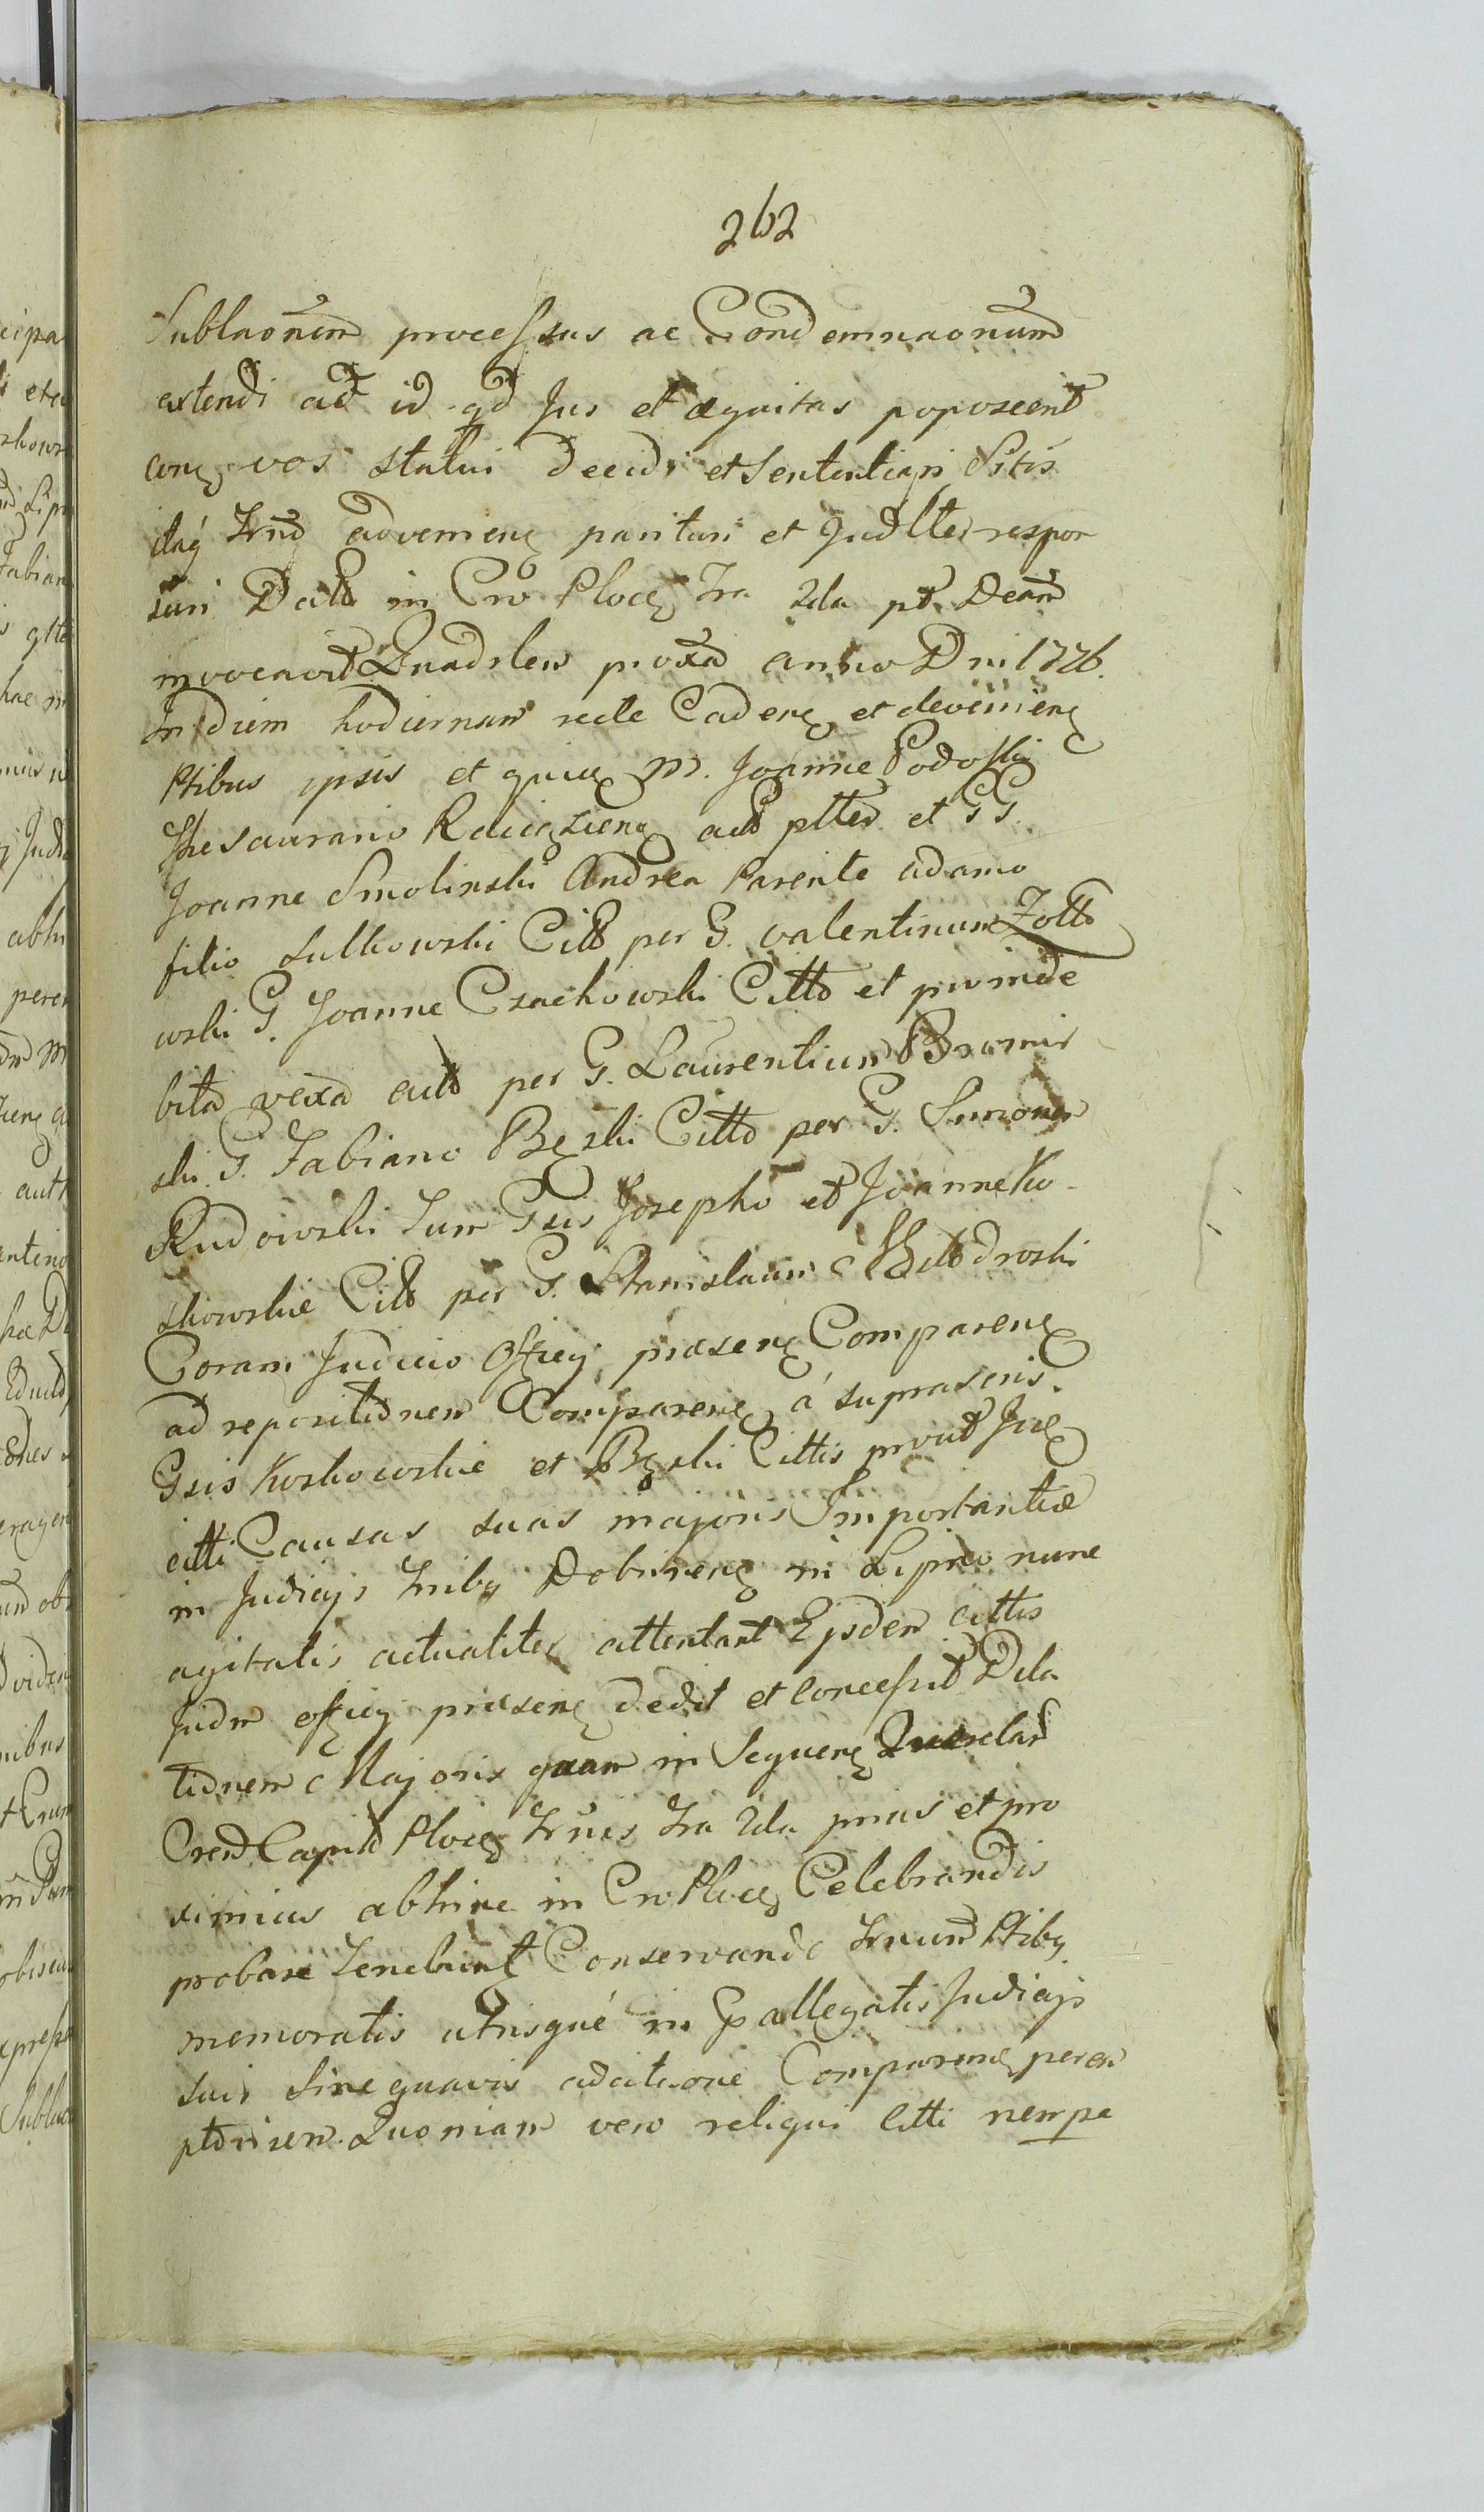 262
Sublaonem processus ac Condemnaonum
extendi ad id qd Jus et aequitas poposcent
conq vos statui decidi et Sententiari Sitis
itaq Trnd advenienq parituri et Judlter respon
suri Datt in Cro Plocq Fra 2da pt Dcam
invocavit Quadrlem proxa anno Dni 1776.
In diem hodiernam recte Cadenq et devenienq
Ptibus ipsis et quicq M. Joanne Podoski
Thesaurario Raciązienq act ptter et GG.
Joanne Smolinski Andrea Parente adamo
filio Sulkowski Citt per G. Valentinum Zołto
wski G. Joanne Czachowski Citto et proinde
bita vexa citt per G. Laurentium Bromir
ski G. Fabiano Bęski Citto per G. Simonem
Rudowski Tum Gsis Josepho et Joanne Ko-
skowskie Citt per G. Stanislaum
Coram Judicio Officy praesenq Comparenq
ad repositionem Comparenq á suprascris.
Gsis Koskowskie et Bęski Cittis prout Jidq
citti Causas suas majoris Importantiae
in Judicijs Tribq Dobrinenq in Lipno nunc
agitatis actualiter attentant Ejsdem cittis
Judm officy praesenq dedit et Concessit Dila
tionem Majoris quam in Sequenq Querelar
Crend Capitl Plocq Trnis Fra 2da prius et pro
ximius abhinc in Cro Plocq Celebrandis
probare Tenebunt Conservando Trnum Ptibq
memoratis utrisqué in pallegatis Judicijs
suis Sine quavis adcitaone Comparenq perem
ptorium. Quoniam vero reliqui Citti nempe